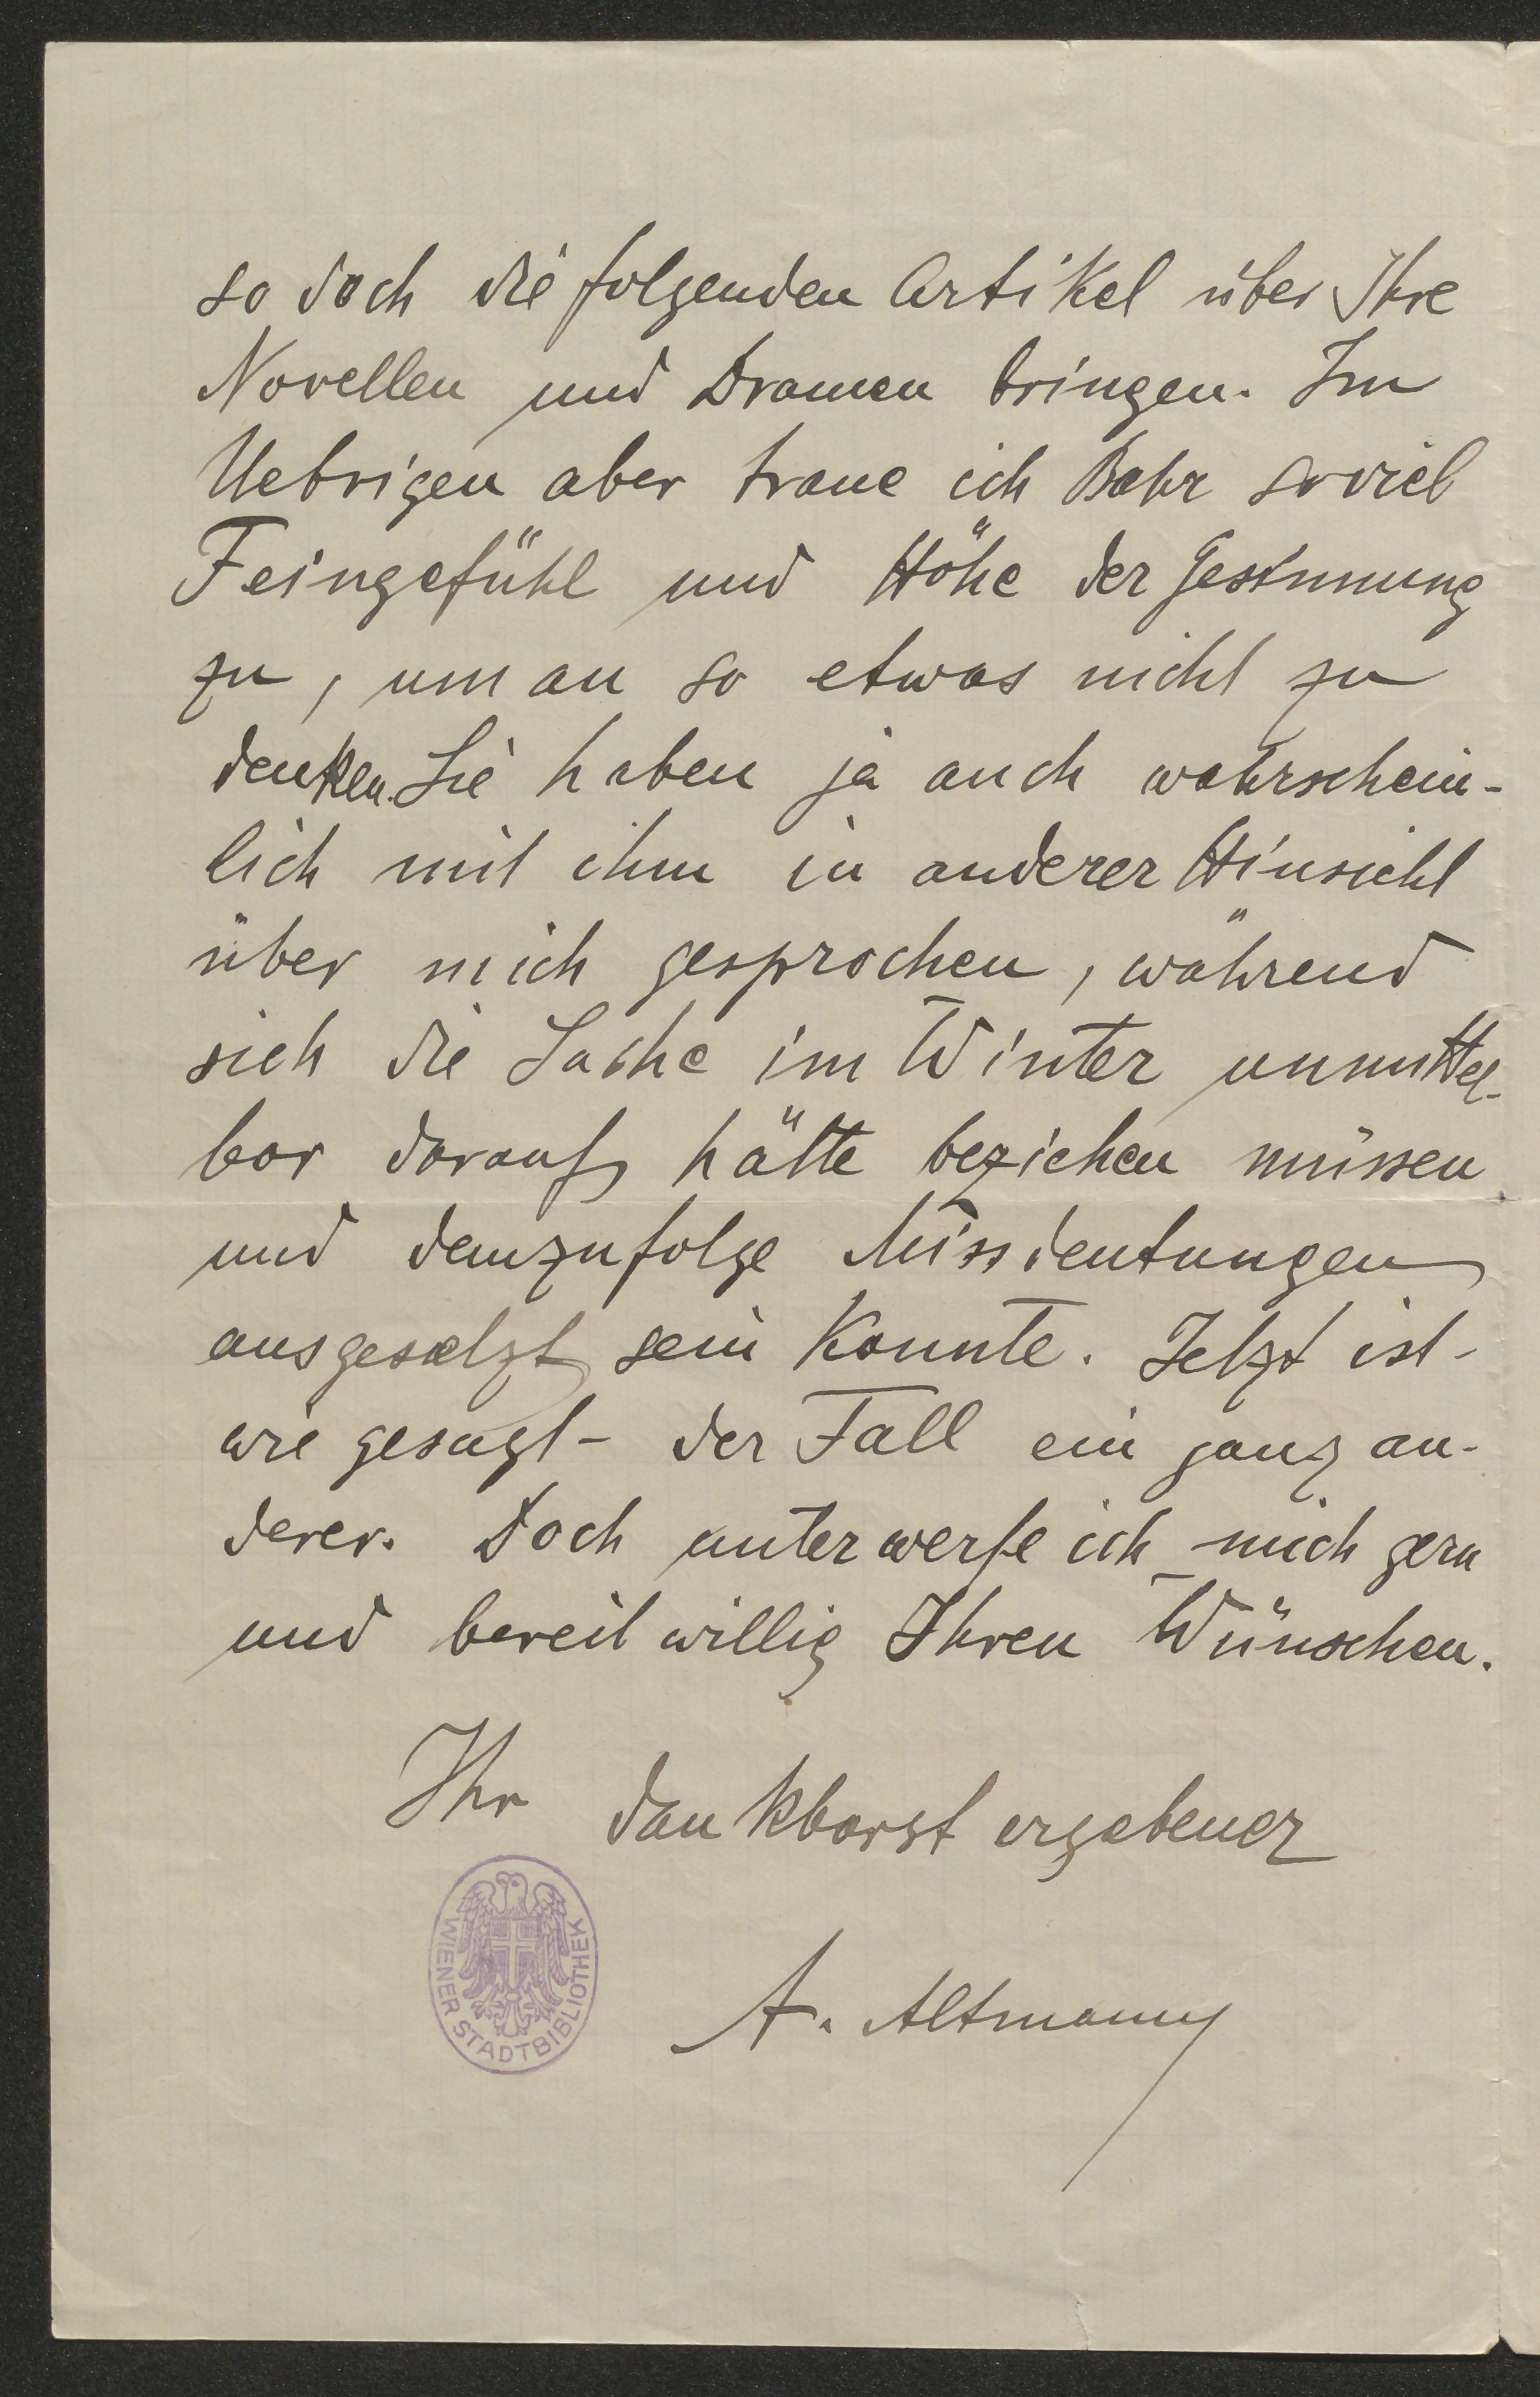 so doch die folgenden Artikel über Ihre
Novellen und Dramen bringen. Im
Uebrigen aber traue ich Bahr soviel
Feingefühl und Höhe der Gesinnung
zu, um an so etwas nicht zu
denken. Sie haben ja auch wahrschein-
lich mit ihm in anderer Hinsicht
über mich gesprochen, während
sich die Sache im Winter unmittel-
bar darauf hätte beziehen müssen
und demzufolge Missdeutungen
ausgesetzt sein konnte. Jetzt ist -
wie gesagt - der Fall ein ganz an-
derer. Doch unterwerfe ich mich gern
und bereitwillig Ihren Wünschen.
Ihr dankbarst ergebener
A. Altmann
WIENER STADTBIBLIOTHEK